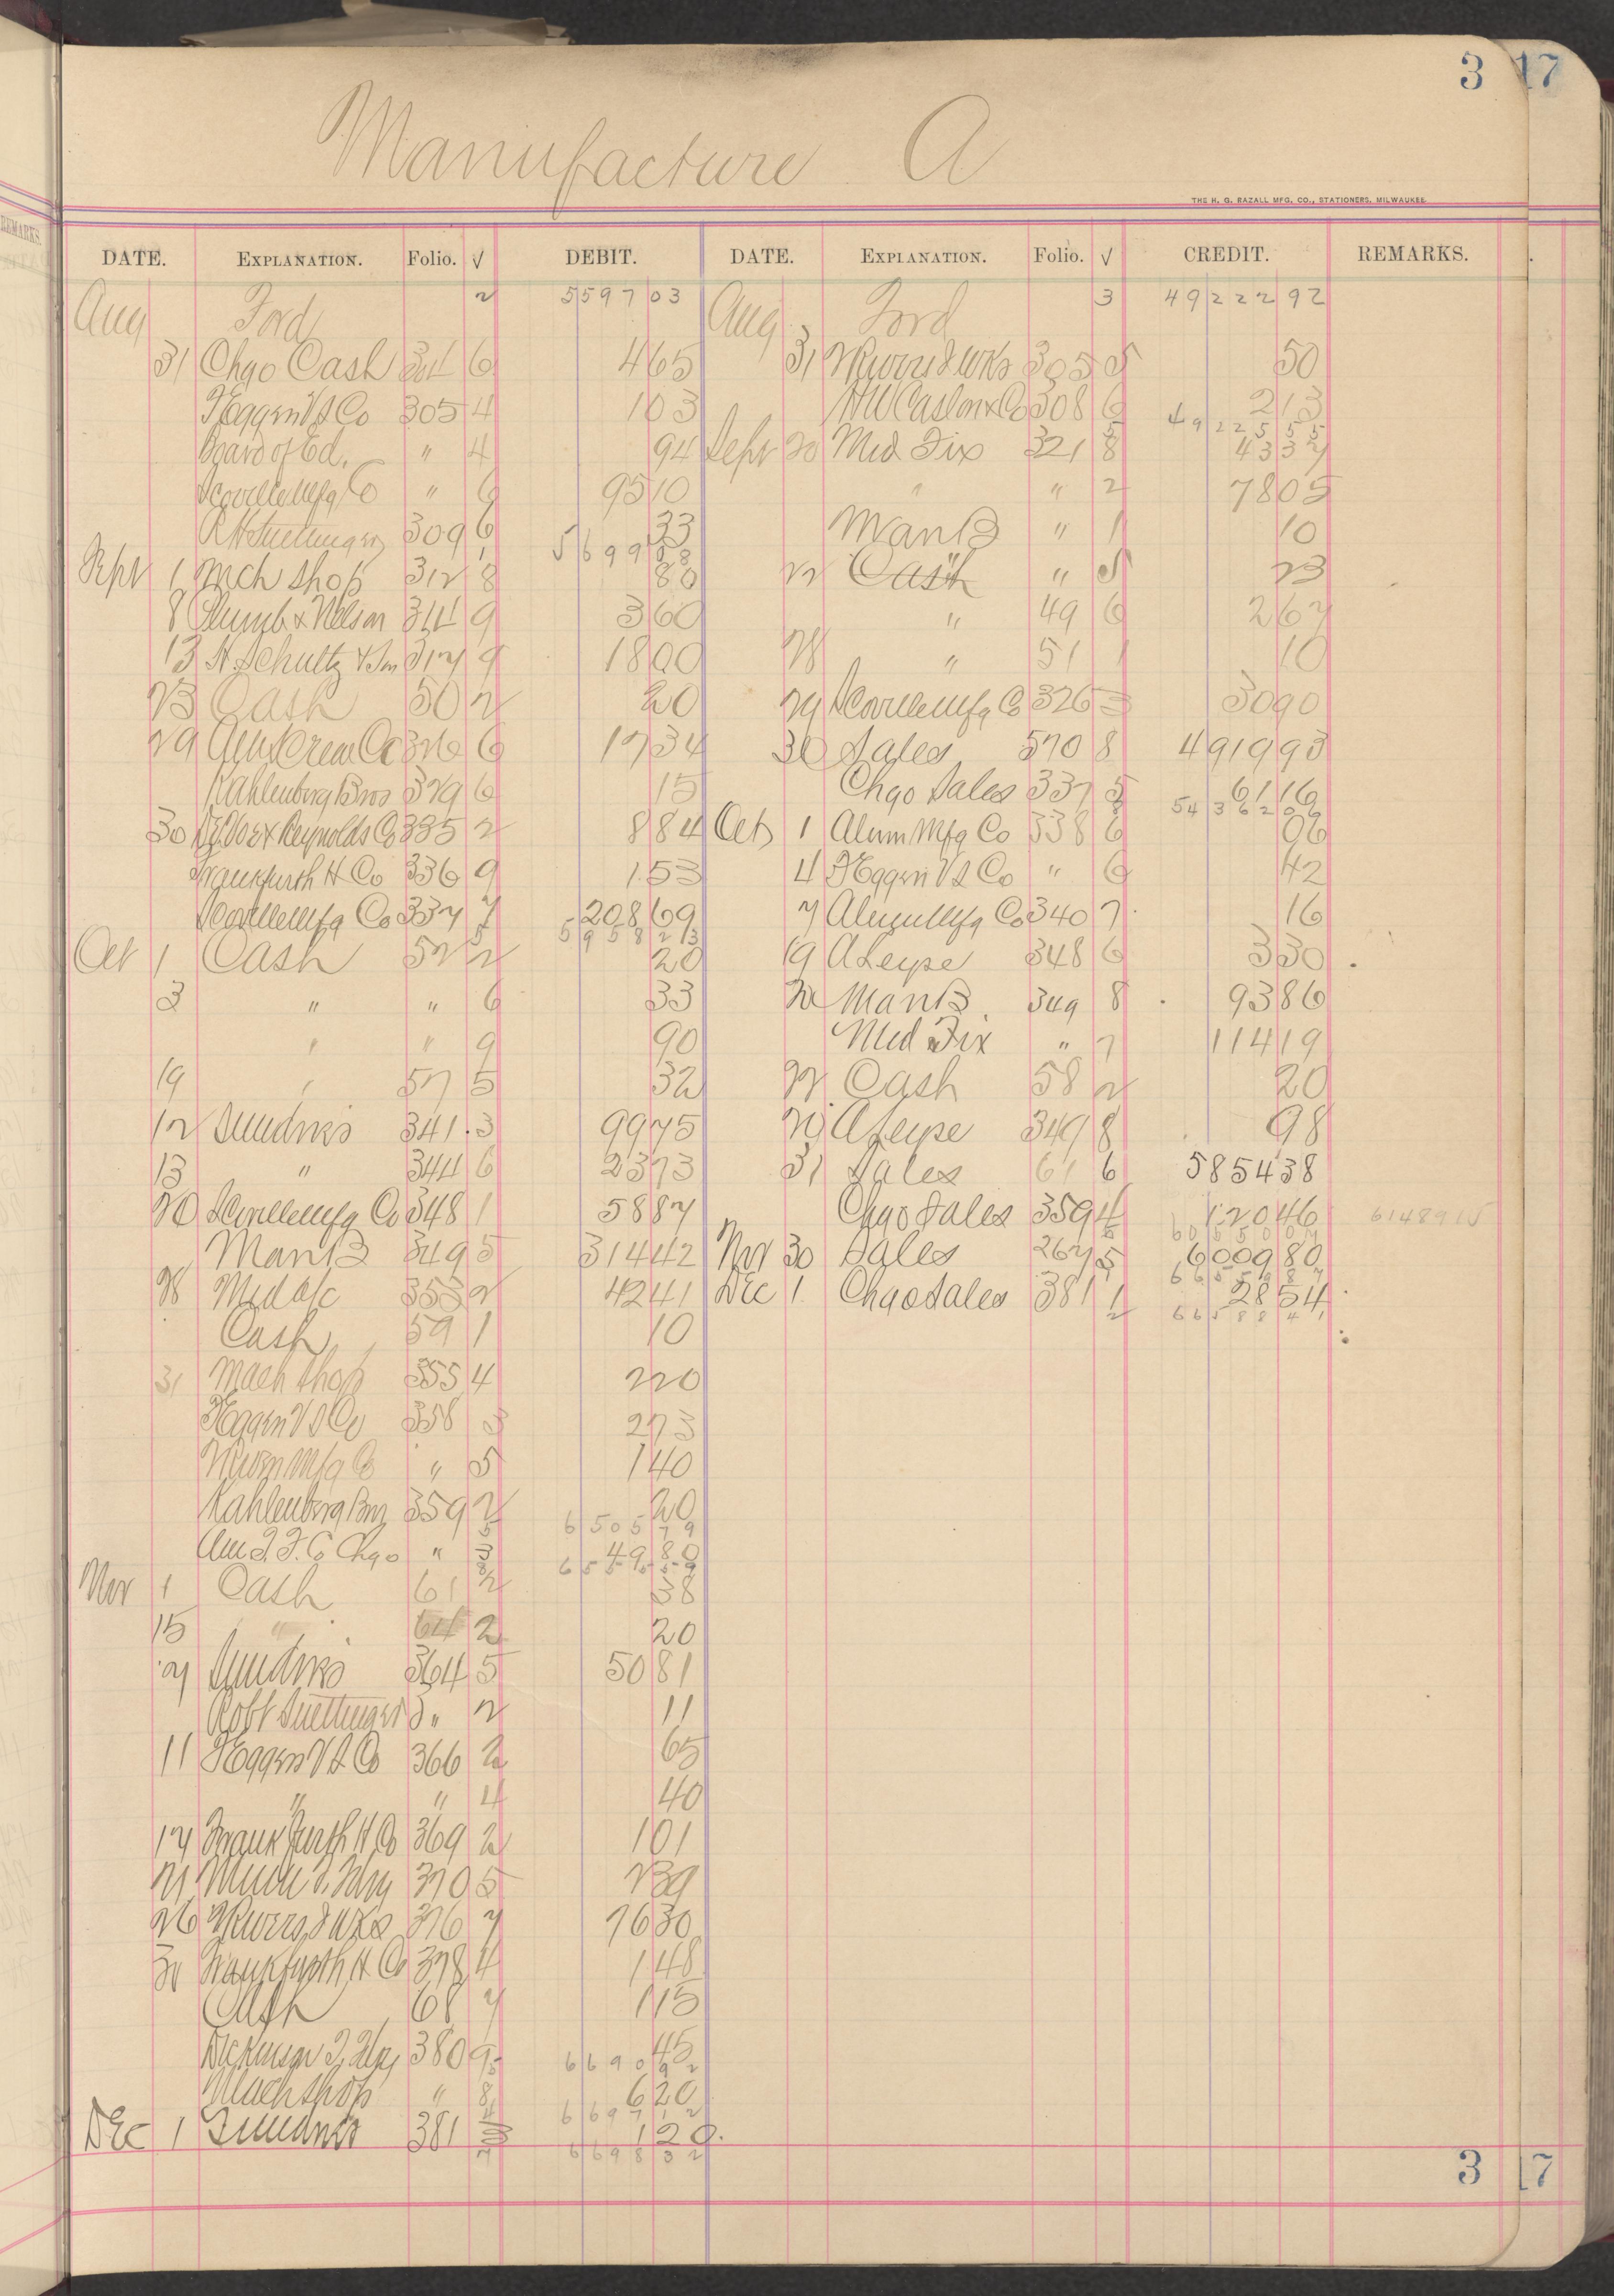 3 17
Manufacture A
THE H. G. RAZALL MFG. CO., STATIONERS, MILWAUKEE.
REMARKS.
DATE. EXPLANATION. Folio. √ DEBIT. DATE. EXPLANATION. Folio. √ CREDIT. REMARKS.
Aug Ford 2 5597 03 Aug Ford 3 49222 92
31 Chgo Cash 304 6 4 65 31 305 5 50
J Eggers V S Co 305 4 1 03 H W Caslon & Co 308 6 2 13
49225 55
Board of Ed. " 4 94 Sept 20 Med Fix 321 8 43 37
Scoville Mfg Co " 6 95 10 " " 2 78 05
309 6 33 Man B " 1 10
5699 08
Sept 1 Mch Shop 312 8 80 22 Cash " 5 23
8 Plumb & Nelson 314 9 3 60 " 49 6 2 67
13 H. Schultz & Son 317 9 18 00 28 " 51 1 10
23 Cash 50 2 20 29 Scoville Mfg Co 326 3 30 90
29 Am Screw Co 326 6 17 34 30 Sales 570 8 4919 93
Kahlenberg Bros 329 6 15 Chgo Sales 337 5 61 16
54362 06
30 DeVoe & Reynolds Co 335 2 8 84 Oct 1 Alum Mfg Co 338 6 06
Frankfurth H Co 336 9 1 53 4 J Eggers V S Co " 6 42
Scoville Mfg Co 337 7 208 69 7 Alum Mfg Co 340 7 16
5958 23
Oct 1 Cash 52 2 20 19 A Leype 348 6 3 30
3 " " 6 33 20 Man B 349 8 93 86
" " 9 90 Med Fix " 7 114 19
19 " 57 5 32 22 Cash 58 2 20
12 Sundries 341 3 99 75 20 A Leype 349 8 98
13 " 344 6 23 73 31 Sales 61 6 5854 38
20 Scoville Mfg Co 348 1 58 87 Chgo Sales 359 4 120 46 61489 15
Man B 349 5 314 42 Nov 30 Sales 267 5 6009 80
28 Med a/c 353 2 42 41 Dec 1 Chgo Sales 381 1 28 54
Cash 59 1 10 66588 41
31 Mach Shop 355 4 2 20
J Eggers V S Co 358 3 2 73
" 5 1 40
Kahlenberg Bros 359 2 20
6505 79
Am T. F. Co Chgo " 3 49 80
6555 59
Nov 1 Cash 61 2 38
15 " 64 2 20
7 Sundries 364 5 50 81
Robt Suettinger " 2 11
11 J Eggers V S Co 366 2 65
" " 4 40
17 Frankfurth H Co 369 2 1 01
21 370 5 2 39
26 376 7 76 30
30 Frankfurth H Co 378 4 1 48
Cash 68 7 1 15
Dickinson 380 9 45
6690 92
Mach Shop " 8 6 20
6697 12
Dec 1 Sundries 381 1 20
6698 32
3 17